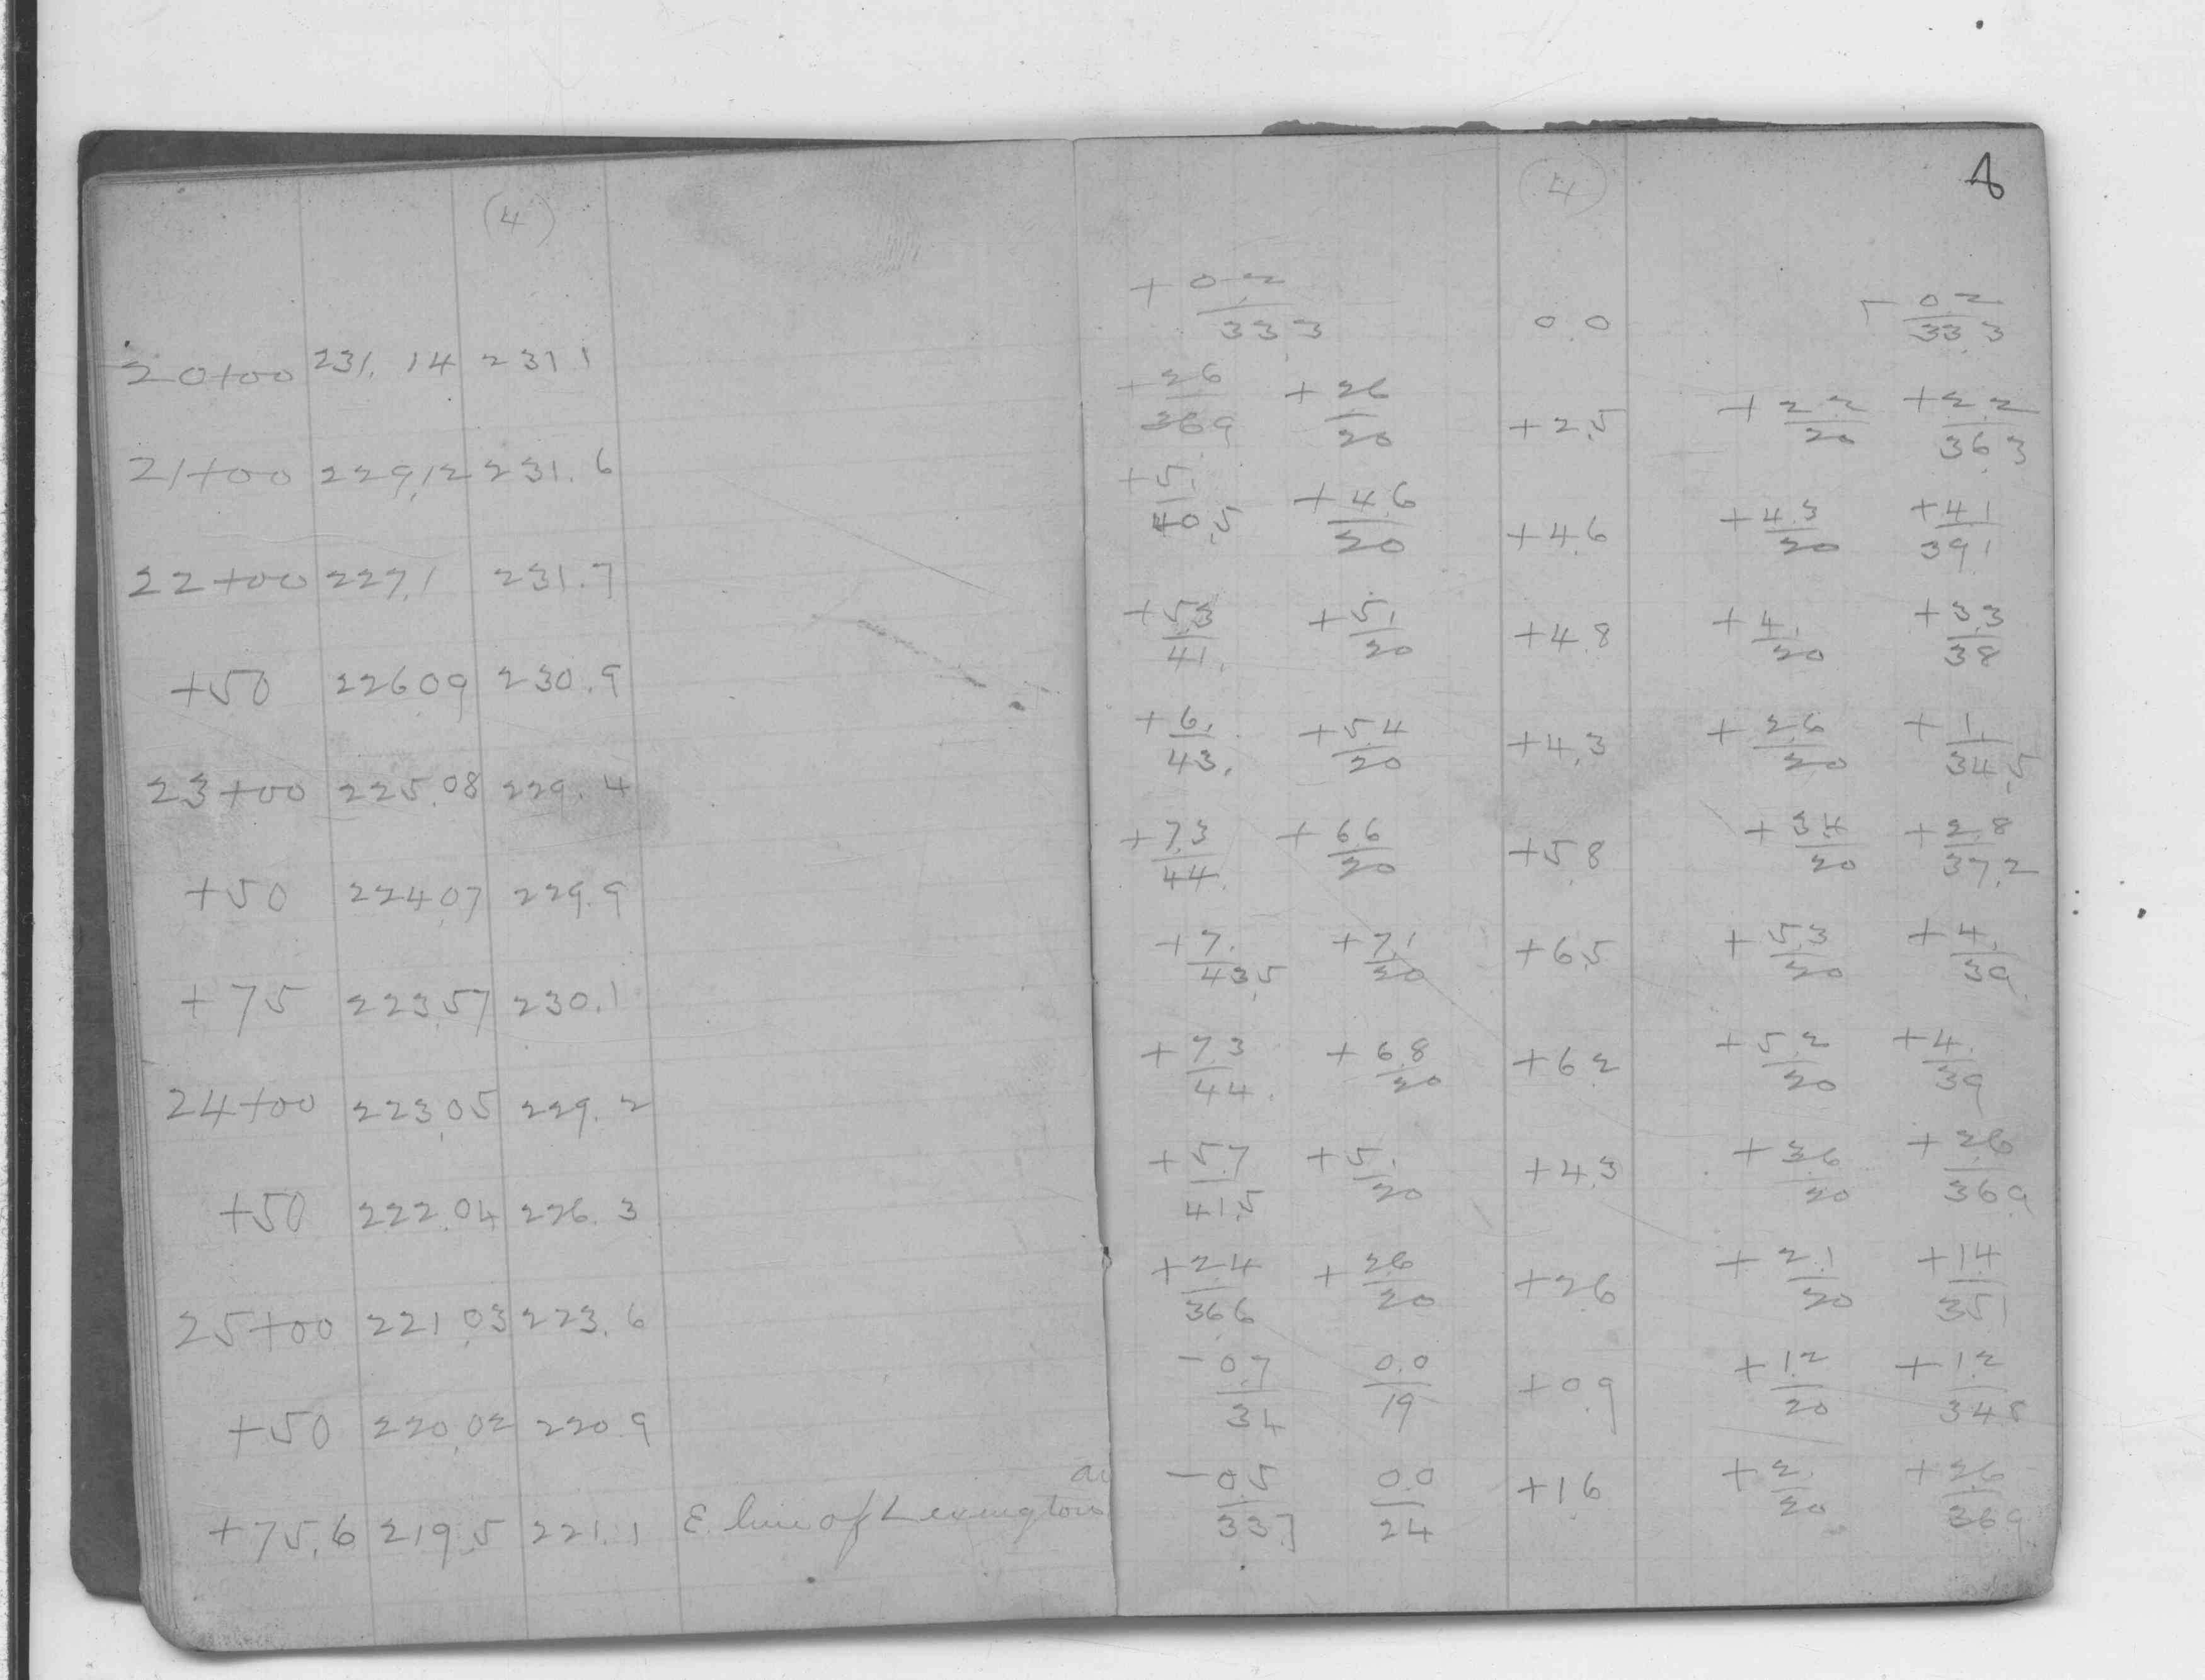 (4)
20+00 231.14 231.1
21+00 229.12 231.6
22+00 227.1 231.7
+50 226.09 230.9
23+00 225.08 229.4
+50 224.07 229.9
+75 223.57 230.1
24+00 223.05 229.2
+50 222.04 226.3
25+00 221.03 223.6
+50 220.02 220.9
+75.6 219.5 221.1 E. line of Lexington
(4) 8
+0.2/33.3 0.0 -0.2/33.3
+2.6/36.9 +2.6/20 +2.5 +2.2/20 +2.2/36.3
+5./40.5 +4.6/20 +4.6 +4.3/20 +4.1/39.1
+5.3/41. +5.1/20 +4.8 +4./20 +3.3/38
+6./43. +5.4/20 +4.3 +2.6/20 +1./34.5
+7.3/44. +6.6/20 +5.8 +3.4/20 +2.8/37.2
+7./43.5 +7.1/20 +6.5 +5.3/20 +4./39.
+7.3/44. +6.8/20 +6.2 +5.2/20 +4./39
+5.7/41.5 +5./20 +4.3 +3.6/20 +2.6/36.9
+2.4/36.6 +2.6/20 +2.6 +2.1/20 +1.4/35.1
-0.7/34 0.0/19 +0.9 +1.2/20 +1.2/34.8
-0.5/33.7 0.0/24 +1.6 +2./20 +2.6/36.9